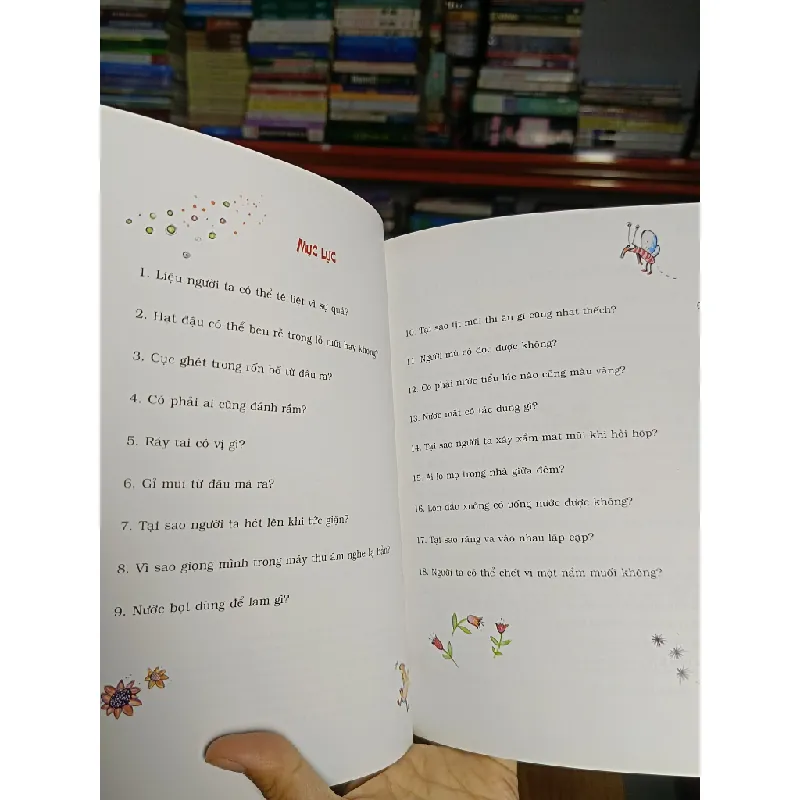 Mục Lục
1. Liệu người ta có thể tê liệt vì sợ quá?
2. Hạt đậu có thể bén rễ trong lỗ mũi hay không?
3. Cục ghét trong rốn bố từ đâu ra?
4. Có phải ai cũng đánh rắm?
5. Ráy tai có vị gì?
6. Gỉ mũi từ đâu mà ra?
7. Tại sao người ta hét lên khi tức giận?
8. Vì sao giọng mình trong máy thu âm nghe lạ hẳn?
9. Nước bọt dùng để làm gì?
10. Tại sao tịt mũi thì ăn gì cũng nhạt thếch?
11. Người mù có được không?
12. Có phải nước tiểu lúc nào cũng màu vàng?
13. Nước mắt có tác dụng gì?
14. Tại sao người ta xây xẩm mặt mũi khi hồi hộp?
15. Ai lọ mọ trong nhà giữa đêm?
16. Lộn đầu xuống có uống nước được không?
17. Tại sao răng va vào nhau lập cập?
18. Người ta có thể chết vì một nắm muối không?